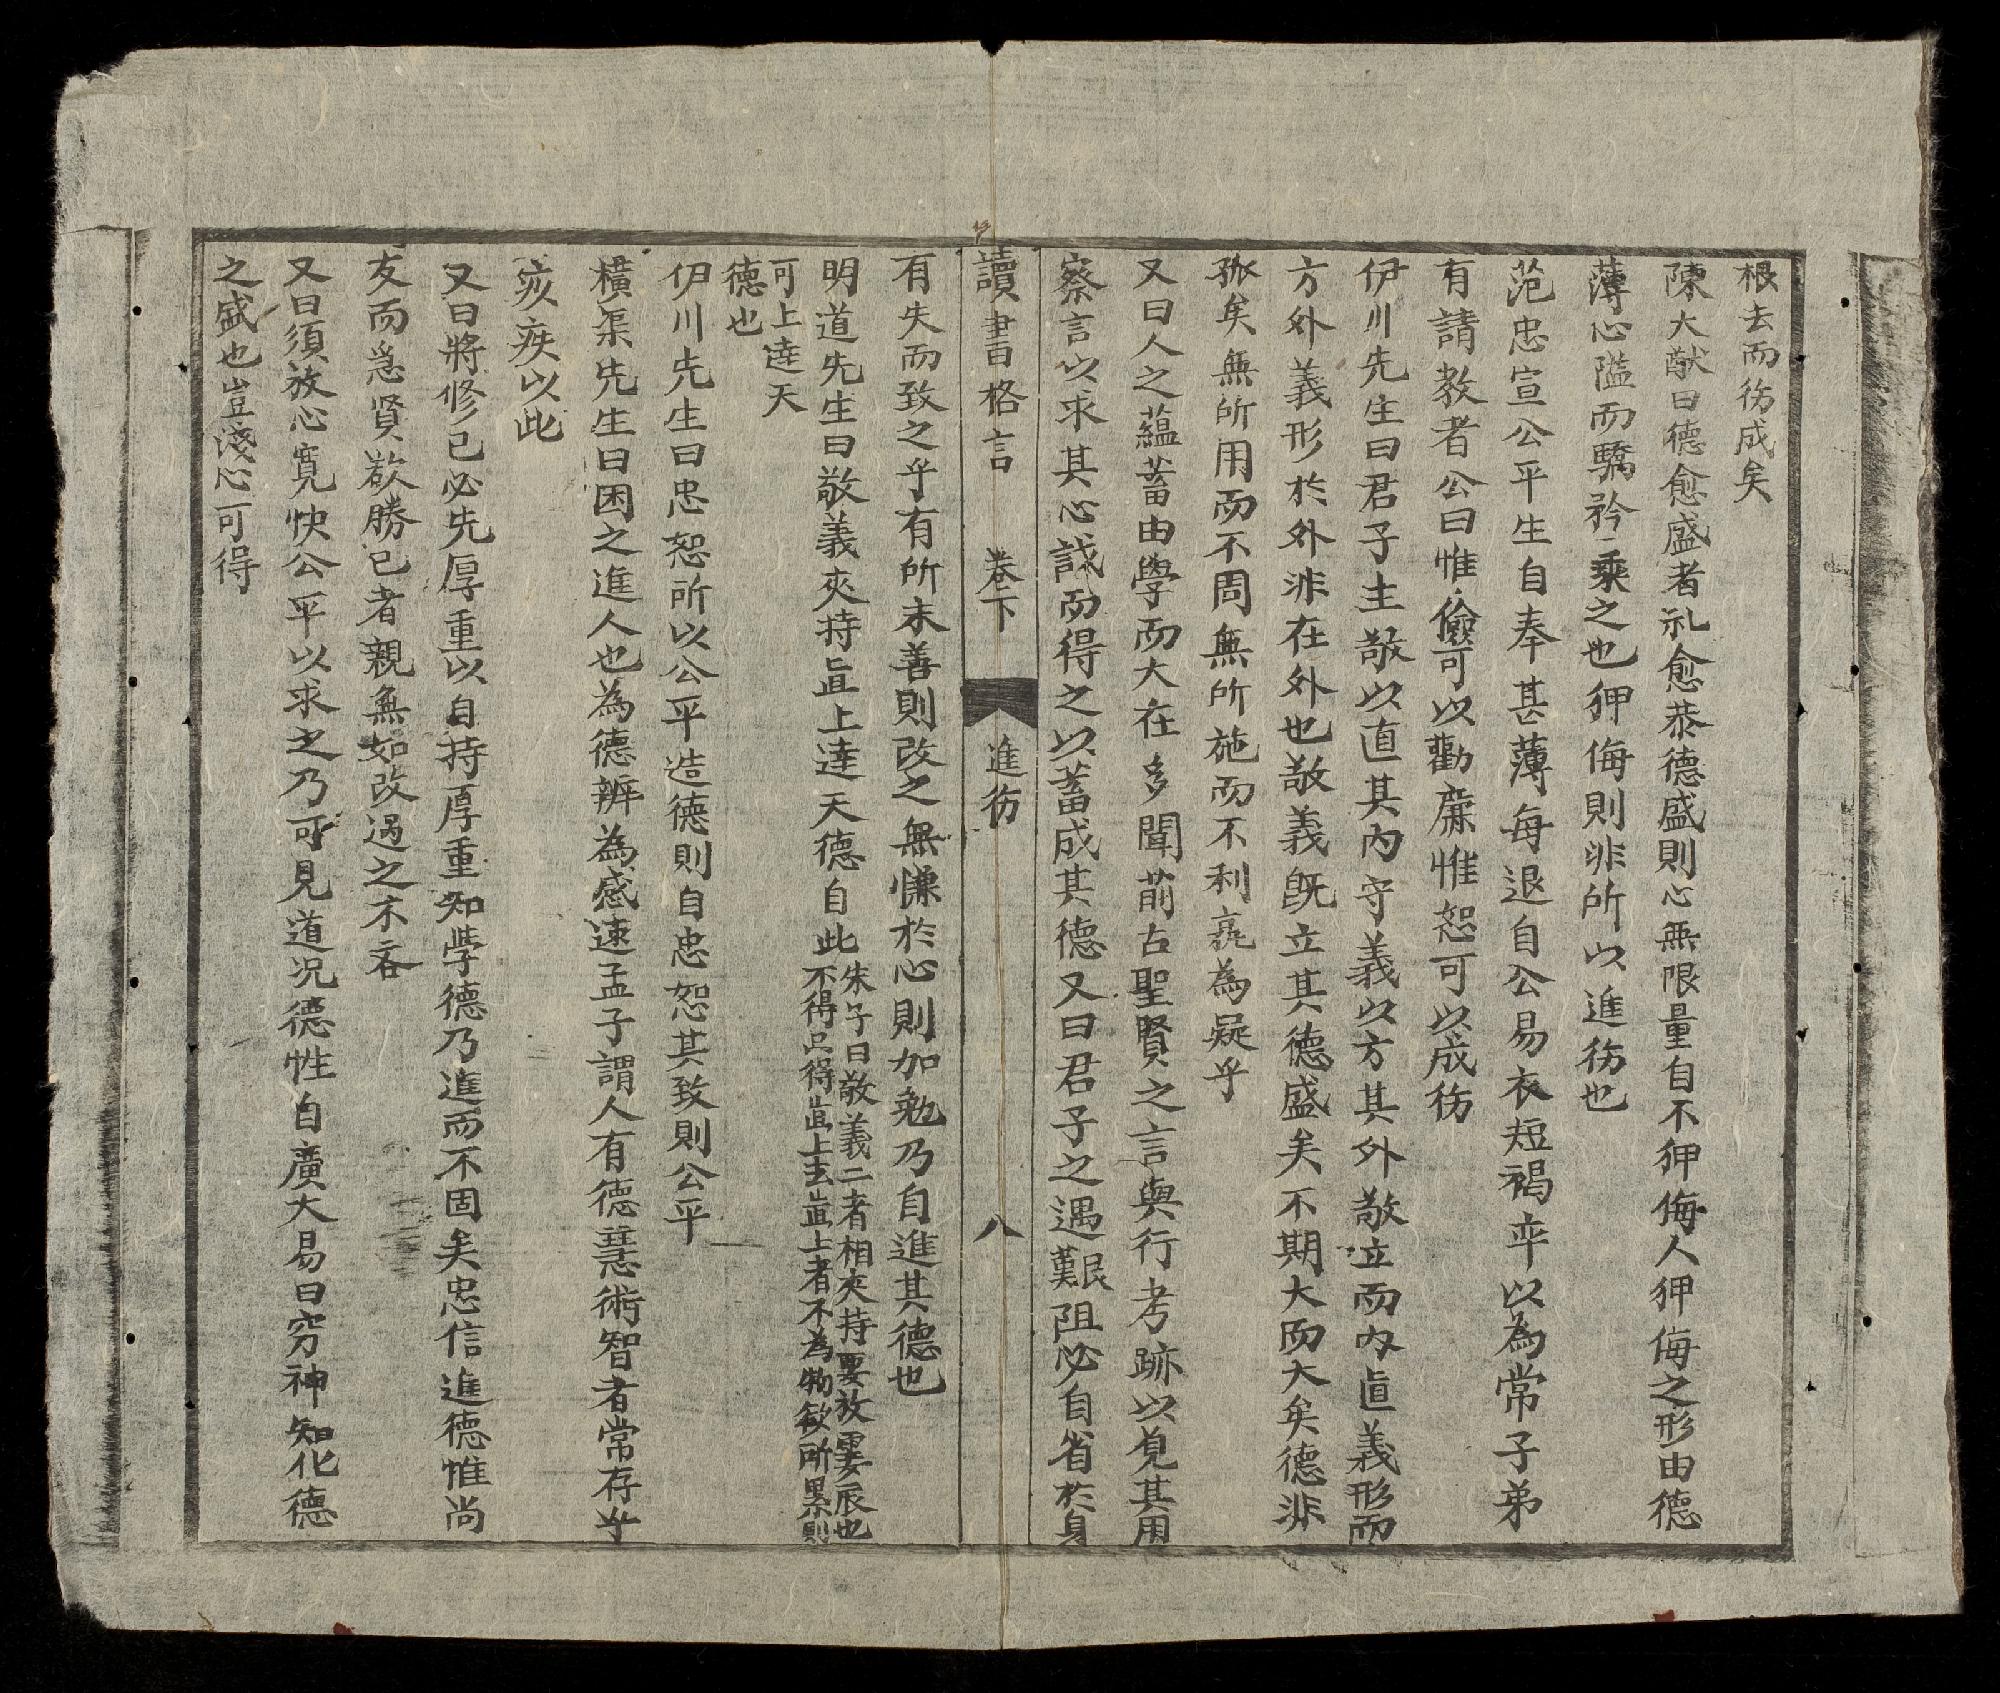 根去而徳成矣
陳大猷曰德愈盛者礼愈恭德盛則心無限量自不狎侮人狎侮之形由德
薄心隘而驕矜乘之也狎侮則非所以進徳也
范忠宣公平生自奉甚薄每退自公易衣短褐卒以為常子弟
有請教者公曰惟儉可以勸廉惟恕可以成徳
伊川先生曰君子主敬以直其內守義以方其外敬立而內直義形而
方外義形於外非在外也敬義既立其德盛矣不期大而大矣德非
孤矣無所用而不周無所施而不利孰為疑乎
又曰人之蘊蓄由學而大在多聞前古聖賢之言與行考跡以見其用
察言以求其心識而得之以蓄成其德又曰君子之遇艱阻必自省於身
讀書格言 卷下 進徳 八
有失而致之乎有所未善則改之無慊於心則加勉乃自進其德也
明道先生曰敬義夾持直上達天德自此
朱子曰敬義二者相夾持要放下霎辰也
不得只得直上去直上者不為物欲所累則
可上達天
德也
伊川先生曰忠恕所以公平造德則自忠恕其致則公平
橫渠先生曰困之進人也為德辨為感速孟子謂人有德慧術智者常存乎
疢疾以此
又曰將修己必先厚重以自持厚重知學德乃進而不固矣忠信進德惟尚
友而急賢欲勝己者親無如改過之不吝
又曰須放心寬快公平以求之乃可見道况德性自廣大易曰窮神知化德
之盛也豈淺心可得